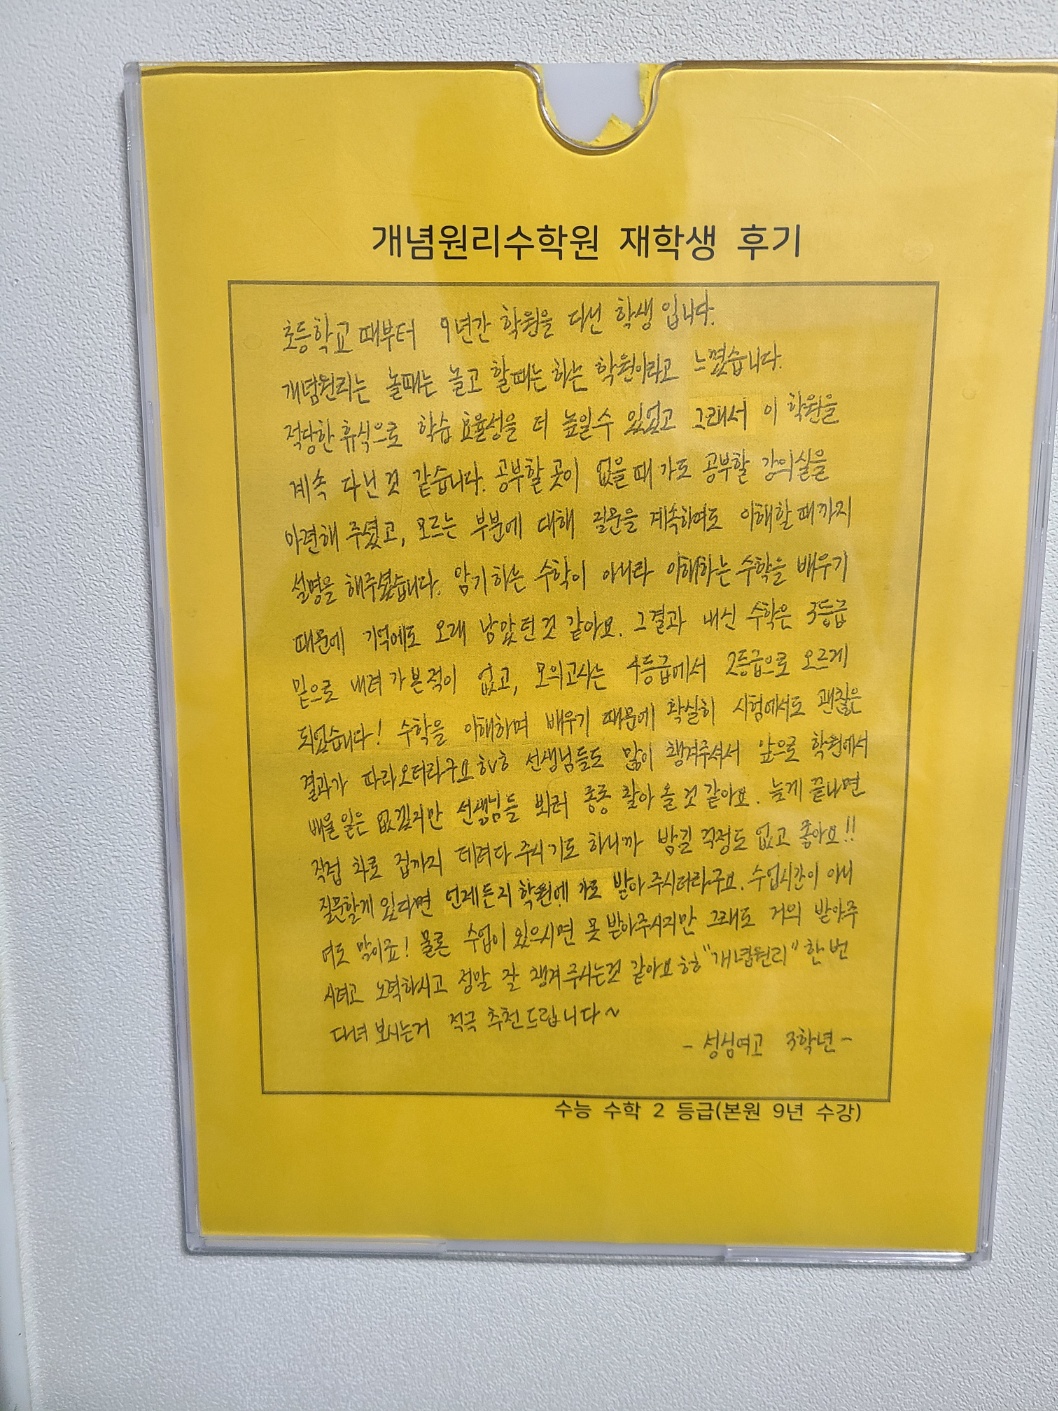 개념원리수학원 재학생 후기
초등학교 때부터 9년간 학원을 다닌 학생 입니다.
개념원리는 놀때는 놀고 할때는 하는 학원이라고 느꼈습니다.
적당한 휴식으로 학습 효율성을 더 높일수 있었고 그래서 이 학원을
계속 다닌 것 같습니다. 공부할 곳이 없을 때 가도 공부할 강의실을
마련해 주셨고, 모르는 부분에 대해 질문을 계속하여도 이해할 때까지
설명을 해주셨습니다. 암기하는 수학이 아니라 이해하는 수학을 배우기
때문에 기억에도 오래 남았던 것 같아요. 그결과 내신 수학은 3등급
밑으로 내려 가본적이 없고, 모의고사는 4등급에서 2등급으로 오르게
되었습니다! 수학을 이해하며 배우기 때문에 확실히 시험에서도 괜찮은
결과가 따라오더라구요 ㅎvㅎ 선생님들도 많이 챙겨주셔서 앞으로 학원에서
배울 일은 없겠지만 선생님들 뵈러 종종 찾아 올 것 같아요. 늦게 끝나면
직접 차로 집까지 데려다 주시기도 하니까 밤길 걱정도 없고 좋아요!!
질문할게 있다면 언제든지 학원에 가도 받아 주시더라구요. 수업시간이 아니
여도 말이죠! 물론 수업이 있으시면 못 받아주시지만 그래도 거의 받아주
시려고 노력하시고 정말 잘 챙겨 주시는것 같아요 ㅎㅎ "개념원리" 한 번
다녀 보시는거 적극 추천드립니다~
- 성심여고 3학년 -
수능 수학 2 등급(본원 9년 수강)